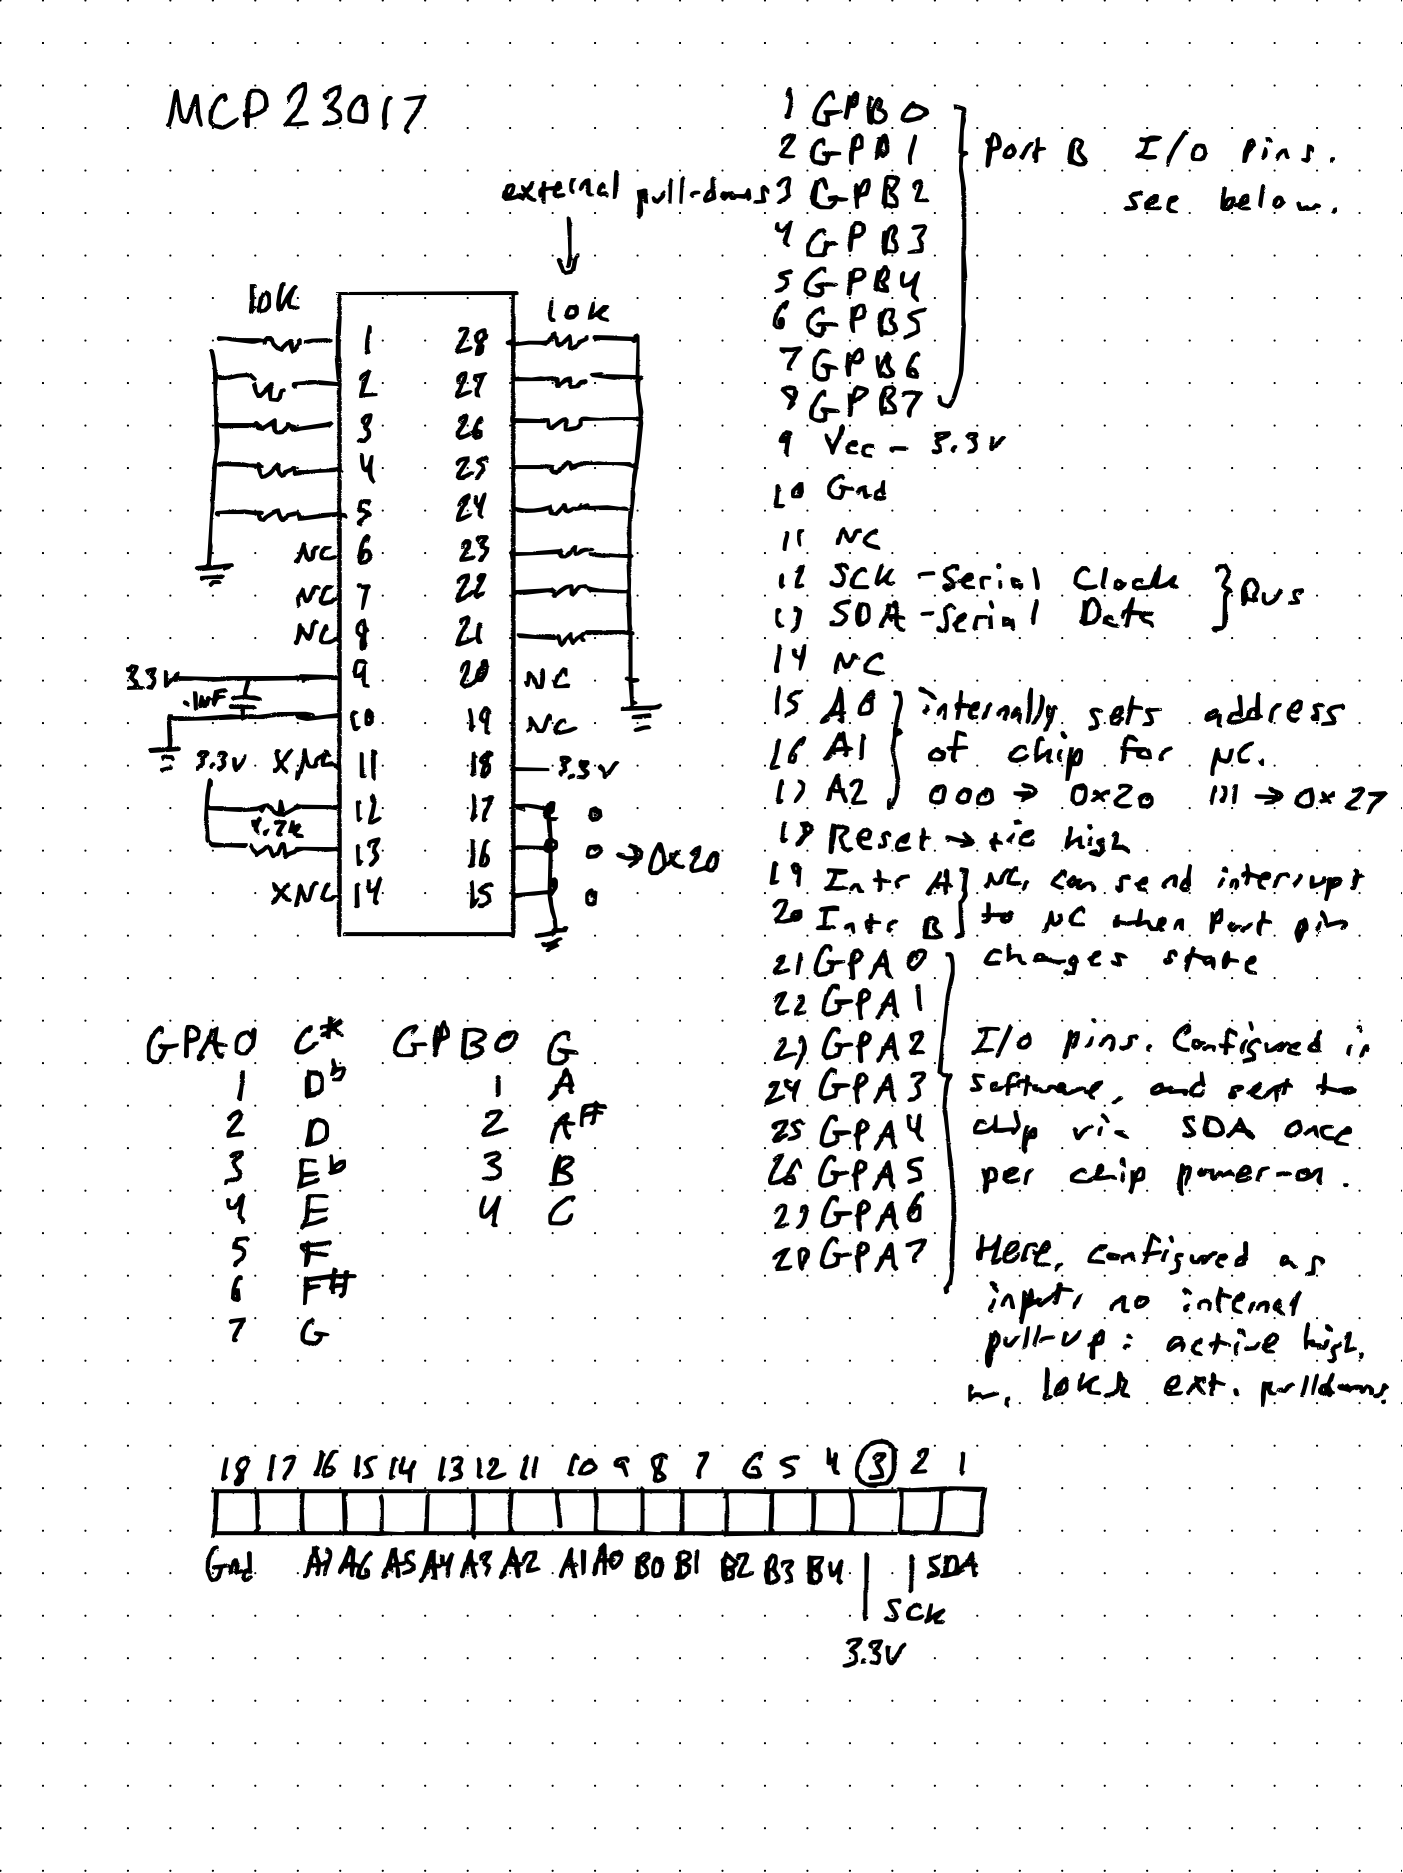 MCP23017
external pull-downs
10K
10K
1 28
2 27
3 26
4 25
5 24
NC 6 23
NC 7 22
NC 8 21
3.3v 9 20 NC
.1uF
10 19 NC
3.3v XNC 11 18 3.3v
12 17 0
4.7K
13 16 0 → 0x20
XNC 14 15 0
GPA0 C* GPB0 G
1 Db 1 A
2 D 2 A#
3 Eb 3 B
4 E 4 C
5 F
6 F#
7 G
1 GPB0
2 GPB1
3 GPB2
4 GPB3
5 GPB4
6 GPB5
7 GPB6
8 GPB7
Port B I/O pins.
see below.
9 Vcc - 3.3v
10 Gnd
11 NC
12 SCK - Serial Clock
13 SDA - Serial Data
Bus
14 NC
15 A0
16 A1
17 A2
internally sets address
of chip for NC.
000 → 0x20 111 → 0x27
18 Reset → tie high
19 Intr A
20 Intr B
NC, can send interrupt
to NC when Port pin
changes state
21 GPA0
22 GPA1
23 GPA2
24 GPA3
25 GPA4
26 GPA5
27 GPA6
28 GPA7
I/O pins. Configured in
software, and sent to
chip via SDA once
per chip power-on.
Here, configured as
input, no internal
pull-up: active high,
w. 10K ext. pulldowns.
18 17 16 15 14 13 12 11 10 9 8 7 6 5 4 3 2 1
Gnd A7 A6 A5 A4 A3 A2 A1 A0 B0 B1 B2 B3 B4 SDA
SCK
3.3V